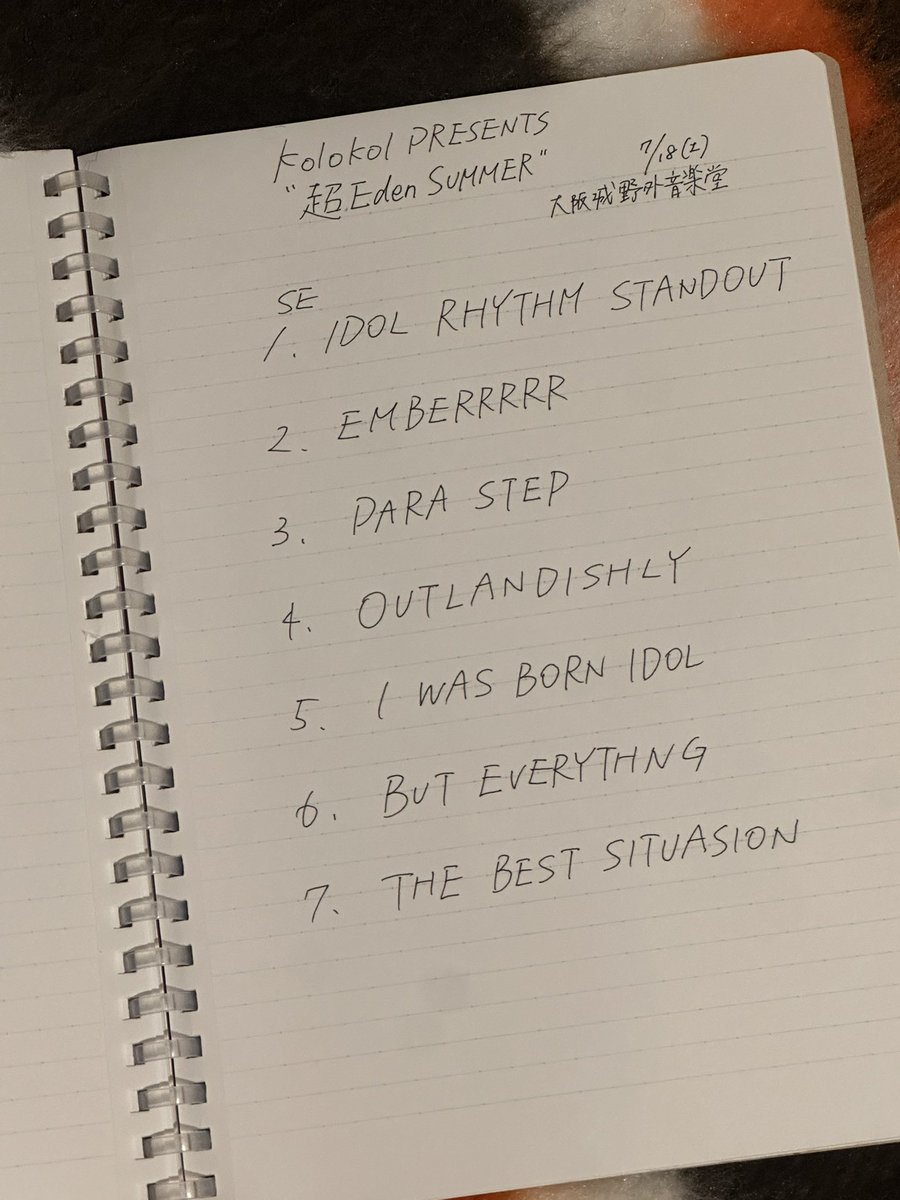 Kolokol PRESENTS
"超Eden SUMMER"
7/18(土)
大阪城野外音楽堂
SE
1. IDOL RHYTHM STANDOUT
2. EMBERRRRR
3. PARA STEP
4. OUTLANDISHLY
5. I WAS BORN IDOL
6. BUT EVERYTHNG
7. THE BEST SITUASION